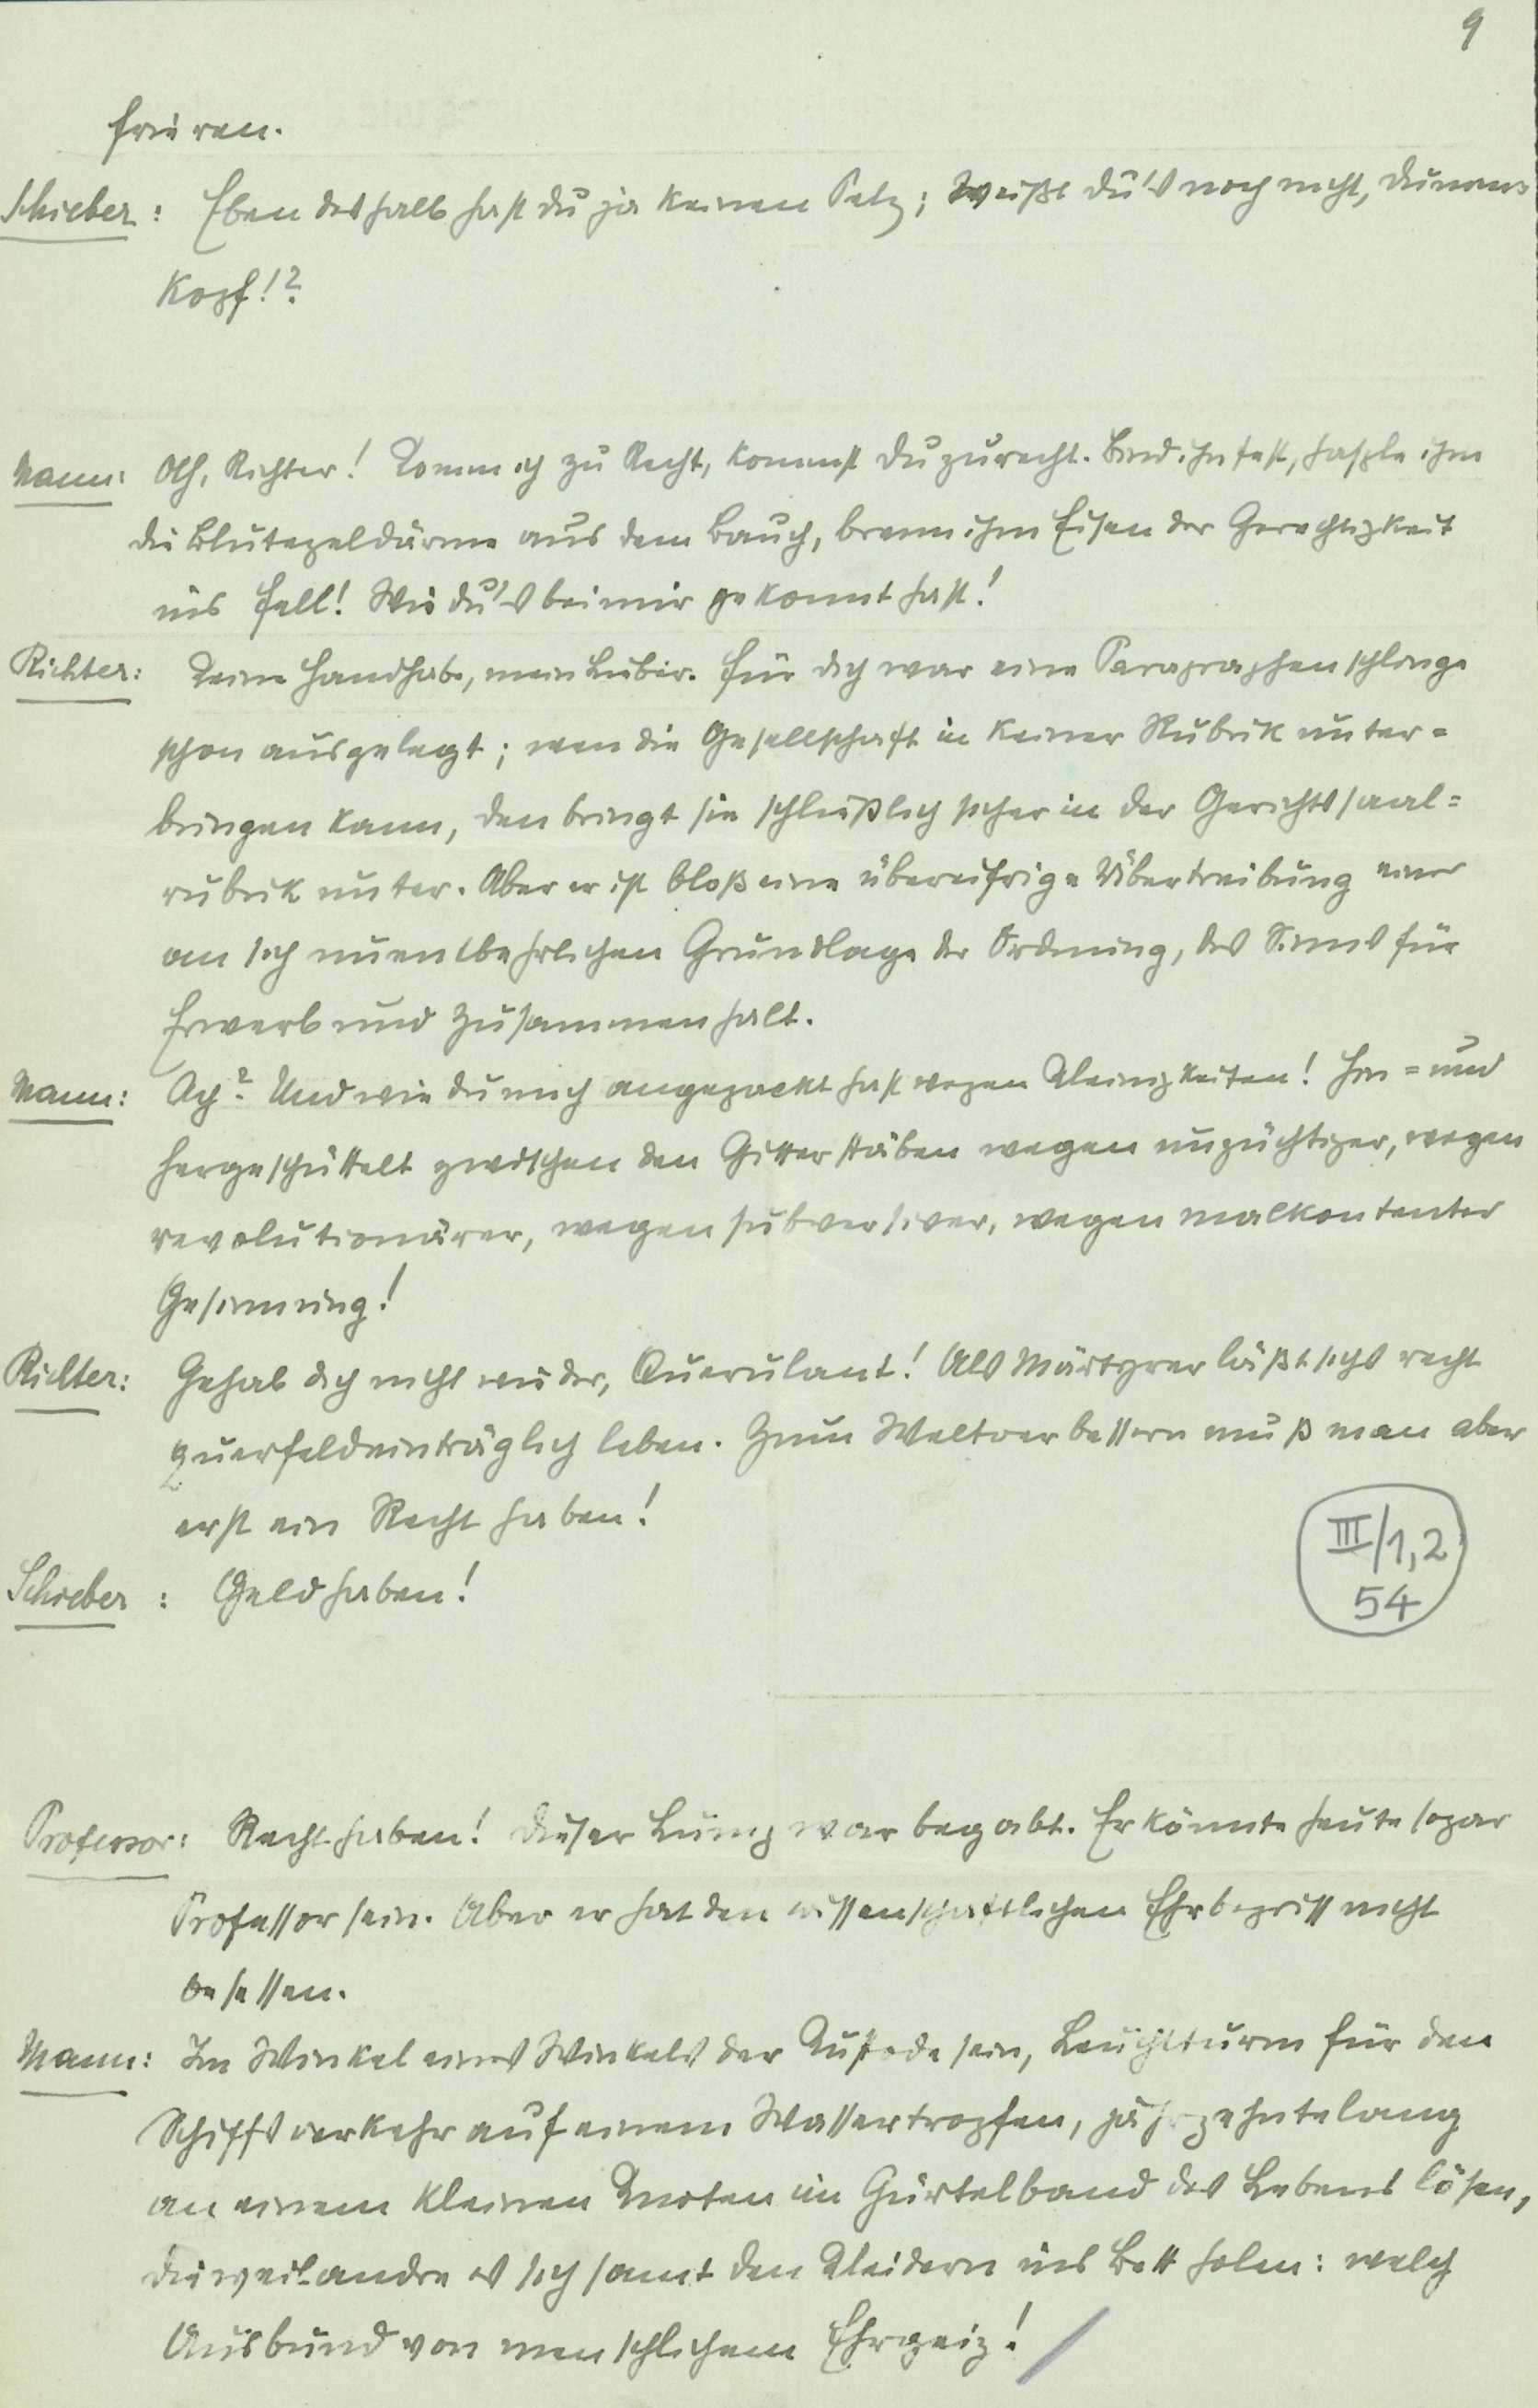 9
frieren.
Schieber: Eben deshalb hast du ja keinen Pelz; weißt du's noch nicht,
Kopf!?
Mann: Oh, Richter! Komm ich zu Recht, kommst du zurecht. Bind ihn fest, hasple ihm
die Blutegeldärme aus dem Bauch, brenn ihm Eisen der Gerechtigkeit
ins Fell! Wie du's bei mir gekonnt hast!
Richter: Keine Handhabe, mein Lieber. Für dich war eine Paragraphenschlinge
schon ausgelegt; wen die Gesellschaft in keiner Rubrik unter=
bringen kann, den bringt sie schließlich sicher in der Gerichtssaal=
rubrik unter. Aber er ist bloß eine übereifrige Übertreibung einer
an sich unentbehrlichen Grundlage der Ordnung, des Sinns für
Erwerb und Zusammenhalt.
Mann: Ach? Und wie du mich angepackt hast wegen Kleinigkeiten! Hin= und
hergeschüttelt zwischen den Gitterstäben wegen unzüchtiger, wegen
revolutionärer, wegen subversiver, wegen malkontenter
Gesinnung!
Richter: Gehab dich nicht wieder, Querulant! Als Märtyrer läßt sichs recht
querfeldeinträglich leben. Zum Weltverbessern muß man aber
erst ein Recht haben!
III/1,2
54
Schieber: Geld haben!
Professor: Recht haben! Dieser Lump war begabt. Er könnte heute sogar
Professor sein. Aber er hat den wissenschaftlichen Ehrbegriff nicht
besessen.
Mann: Im Winkel eines Winkels der Kustode sein, Leuchtturm für den
Schiffsverkehr auf einem Wassertropfen, jahrzehntelang
an einem kleinen Knoten im Gürtelband des Lebens lösen,
dieweil andre es sich samt den Kleidern ins Bett holen: welch
Ausbund von menschlichem Ehrgeiz!